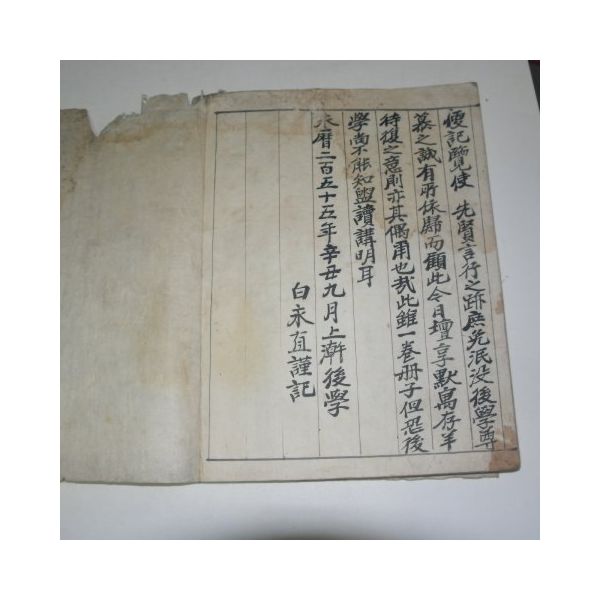 便記覽使 先賢言行之跡庶免泯没後學尊
慕之誠有所依歸而顧此今日壇享默寓存羊
待復之意則亦其偶爾也哉此雖一卷册子但恐後
學尚不能知盥讀講明耳
永曆二百五十五年辛丑九月上澣後學
白永直謹記